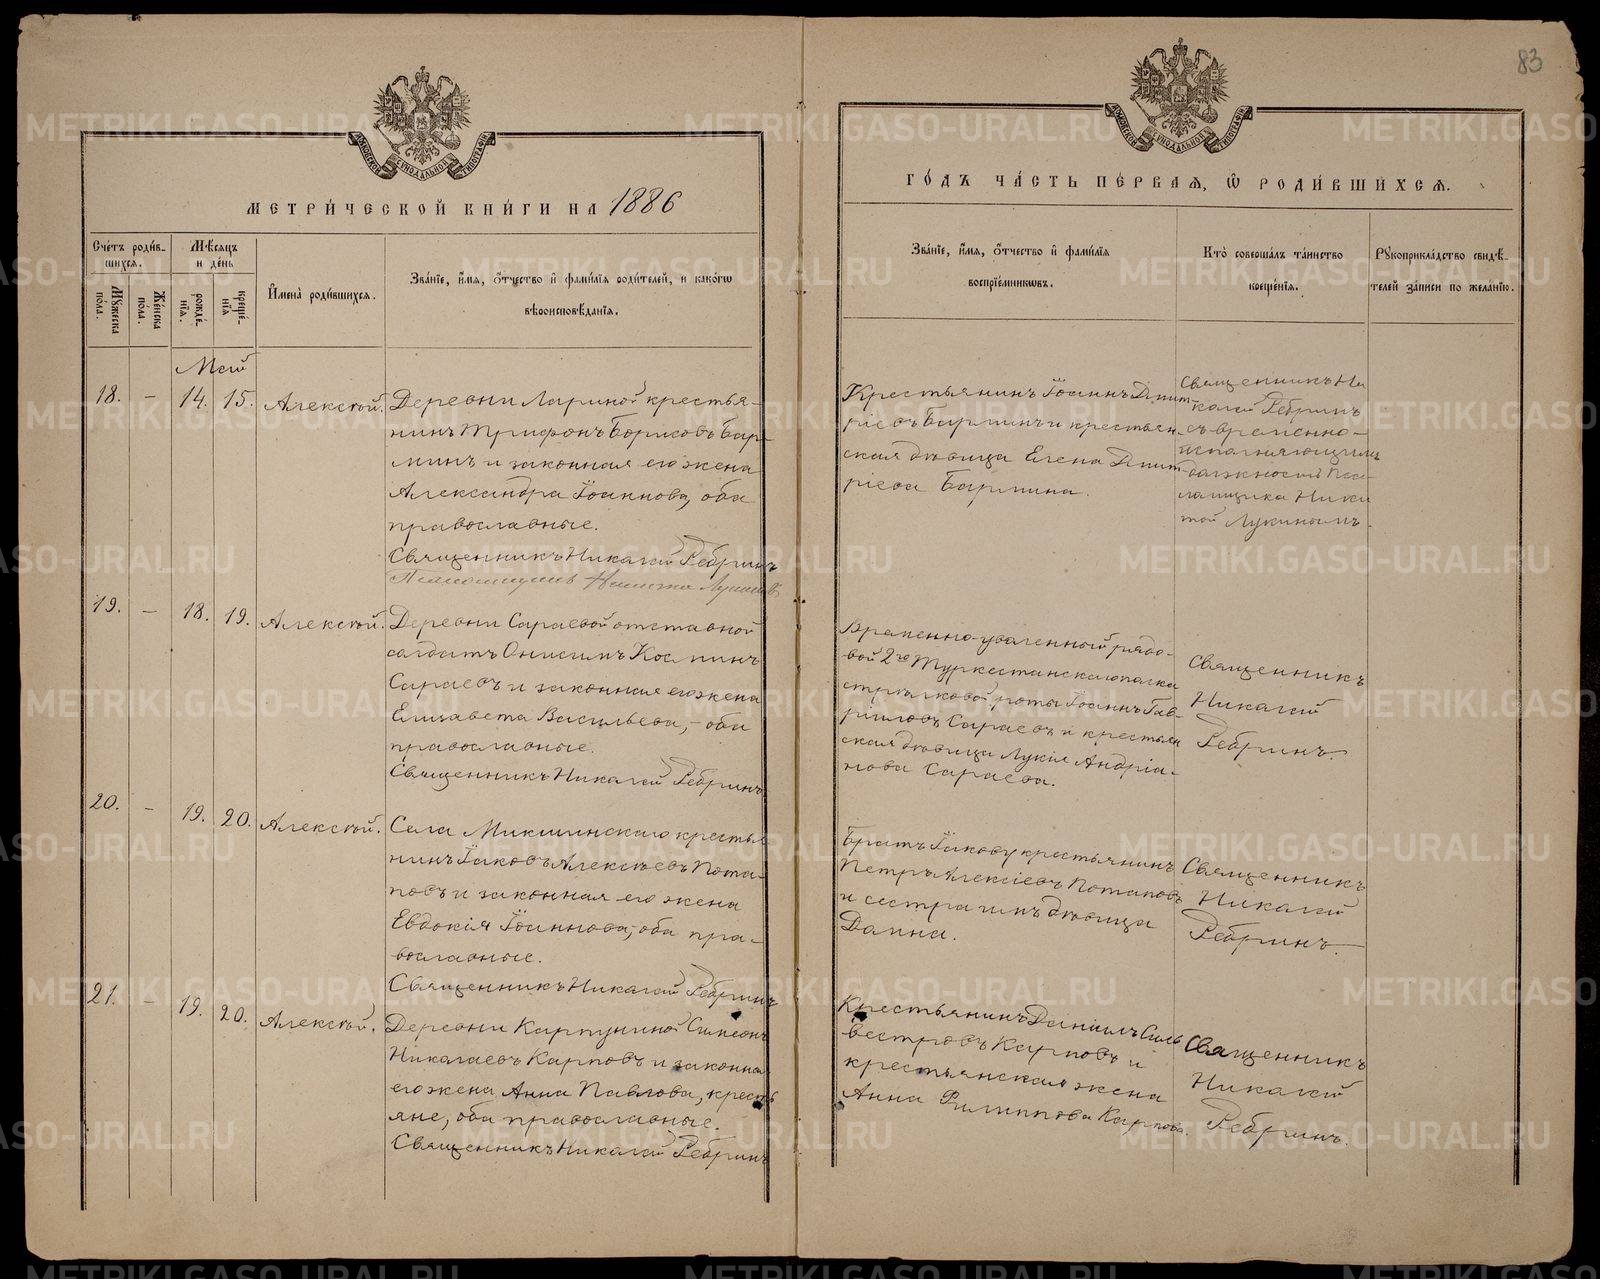 83
МЕТРИ́ЧЕСКОЙ КНИ́ГИ НА 1886
ГО́ДЪ ЧА́СТЬ ПЕ́РВАЯ, Ѡ҆ РОДИ́ВШИХСЯ.
Сче́тъ роди́в-
шихся.
Мꙋжеска по́ла.
Же́нска по́ла.
Мѣ́сяцъ
и де́нь
рожде́-
нїя.
креще́-
нїя
И҆мена̀ роди́вшихся.
Зва́нїе, и҆́мя, ѻ҆́тчество и҆ фами́лїя роди́телей, и҆ како́гѡ
вѣроисповѣ́данїя.
Зва́нїе, и҆́мя, ѻ҆́тчество и҆ фами́лїя
воспрїе́мникѡвъ.
Кто̀ соверша́лъ та́инство
креще́нїя.
Рꙋкоприкла́дство свидѣ́-
телей за́писи по жела́нїю.
Май
18. - 14. 15. Алексѣй.
Деревни Лариной крестья-
нинъ Трифонъ Борисовъ Бар-
минъ и законная его жена
Александра Іоаннова, оба
православные.
Священникъ Николай Ребринъ
Псаломщикъ Никита Лукинъ
Крестьянинъ Іоаннъ Дмит-
ріевъ Барминъ и крестьян-
ская дѣвица Елена Дмит-
ріева Бармина.
Священникъ Ни-
колай Ребринъ
съ временно-
исполняющимъ
должность Пса-
ломщика Ники-
той Лукинымъ.
19. - 18. 19. Алексѣй.
Деревни Сараевой отставной
солдатъ Онисимъ Косминъ
Сараевъ и законная его жена
Елизавета Васильева, - оба
православные.
Священникъ Николай Ребринъ
Временно-уволенный рядо-
вой 2го Туркестанскаго полка
стрѣлковой роты Іоаннъ Гав-
ріиловъ Сараевъ и крестьян
ская дѣвица Лукія Андріа-
нова Сараева.
Священникъ
Николай
Ребринъ.
20. - 19. 20. Алексѣй.
Села Мироновскаго крестья
нинъ Іаковъ Алексѣевъ Пота-
повъ и законная его жена
Евдокія Іоаннова, оба пра-
вославные.
Священникъ Николай Ребринъ
Братъ Іакову крестьянинъ
Петръ Алексіевъ Потаповъ
и сестра имъ дѣвица
Домна.
Священникъ
Николай
Ребринъ.
21. - 19. 20. Алексѣй.
Деревни Карпушиной Симеонъ
Николаевъ Карповъ и законная
его жена Анна Павлова, кресть
яне, оба православные.
Священникъ Николай Ребринъ
Крестьянинъ Даніилъ Силь
вестровъ Карповъ и
крестьянская жена
Анна Филиппова Карпова.
Священникъ
Николай
Ребринъ.
METRIKI.GASO-URAL.RU